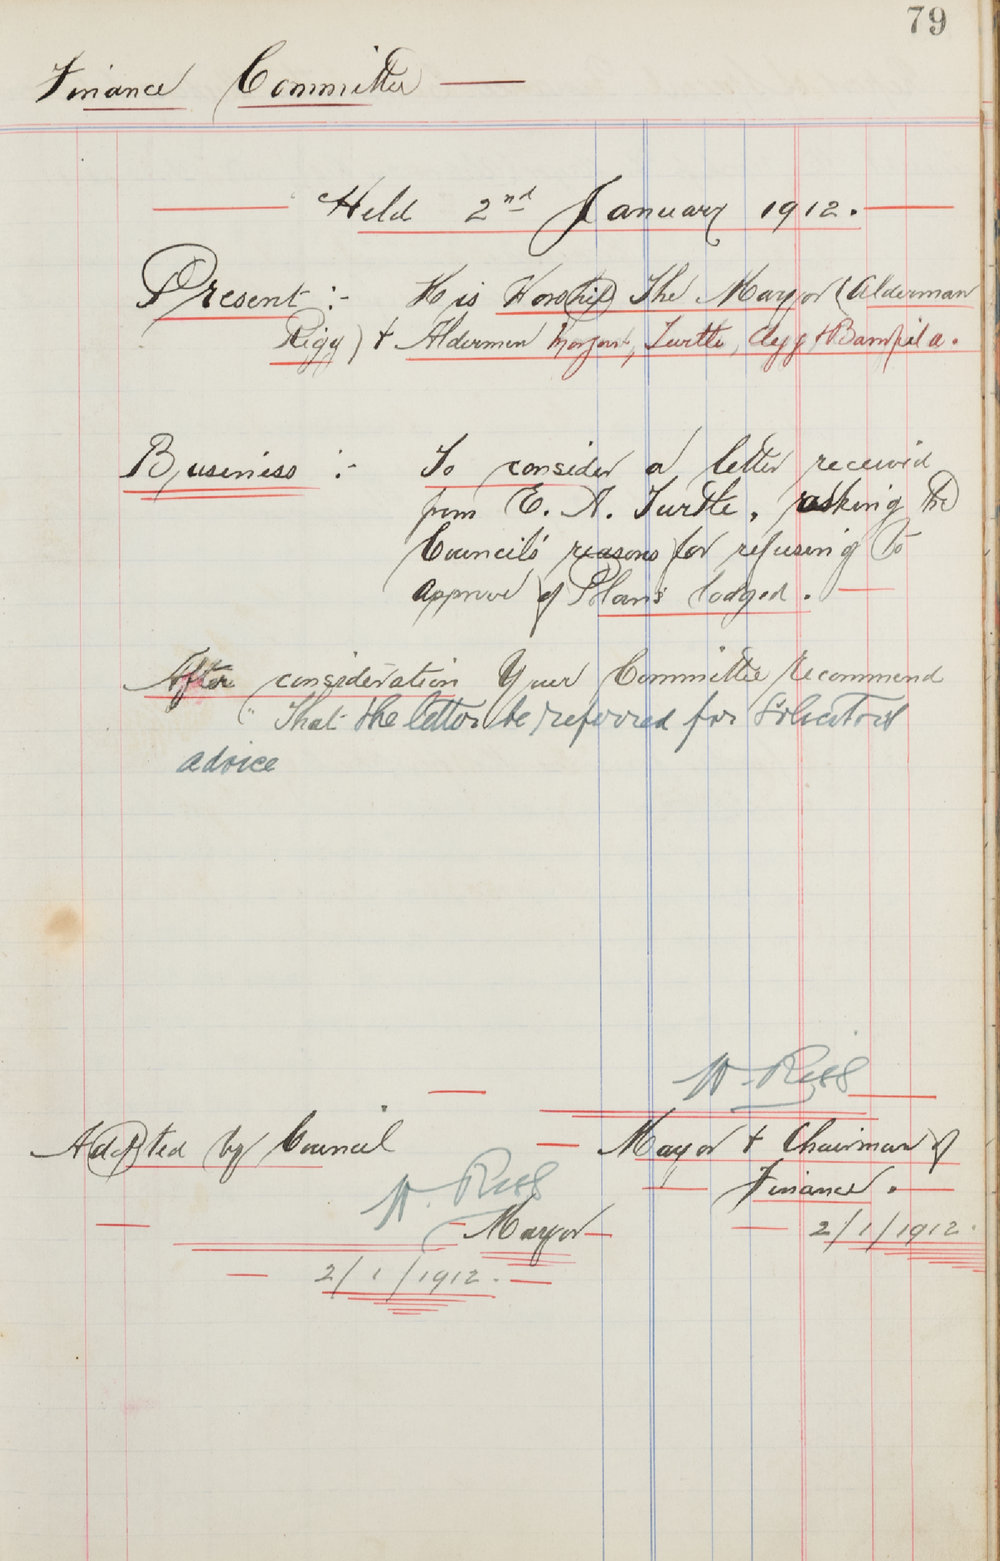 79
Finance Committee
Held 2nd January 1912.
Present :- His Worship The Mayor (Alderman
Rigg) + Aldermen Turtle, Clegg + Bampild.
Business :- To consider a letter received
from E. A. Turtle, asking the
Council's reasons for refusing to
approve of Plans lodged.
After consideration Your Committee recommend
"That the letter be referred for Solicitors
advice
H. Rigg
Adopted by Council
Mayor + Chairman of
Finance.
H. Rigg
Mayor
2/1/1912.
2/1/1912.